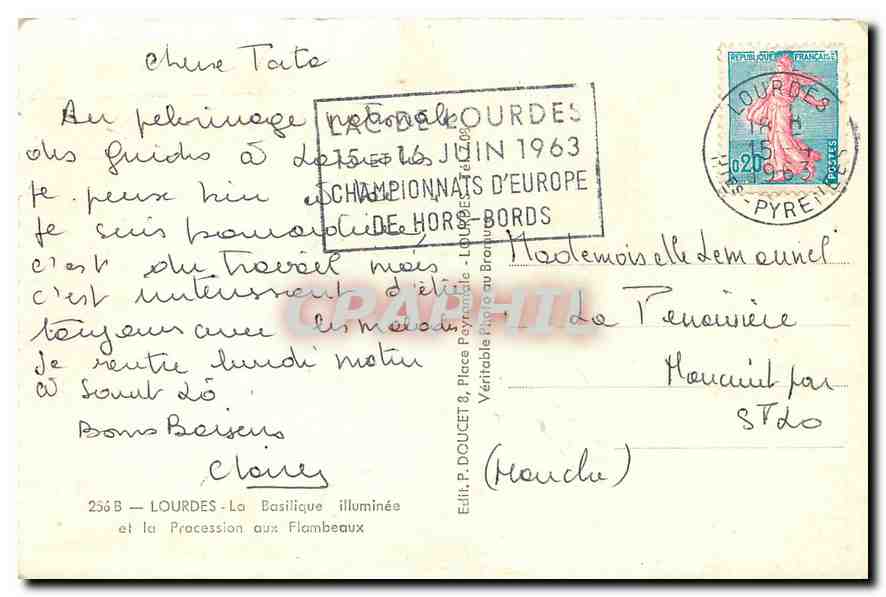 Chere Tata
Au pelerinage nationale
des Guides à Lourdes
je peux bien
je suis
c'est du travail mais
c'est intéressant d'être
toujours avec les malades
je rentre lundi matin
à Saint Lô
Bons Baisers
256 B — LOURDES - La Basilique illuminée
et la Procession aux Flambeaux
LAC DE LOURDES
15 et 16 JUIN 1963
CHAMPIONNATS D'EUROPE
DE HORS-BORDS
Edit. P. DOUCET 8, Place Peyramale - LOURDES - Tél.
Véritable Photo au Bromure
REPUBLIQUE FRANÇAISE
0,20
POSTES
LOURDES
15
1963
HTES-PYRENEES
Mademoiselle Lemounel
La
par
St Lo
(Manche)
CPAPHIL